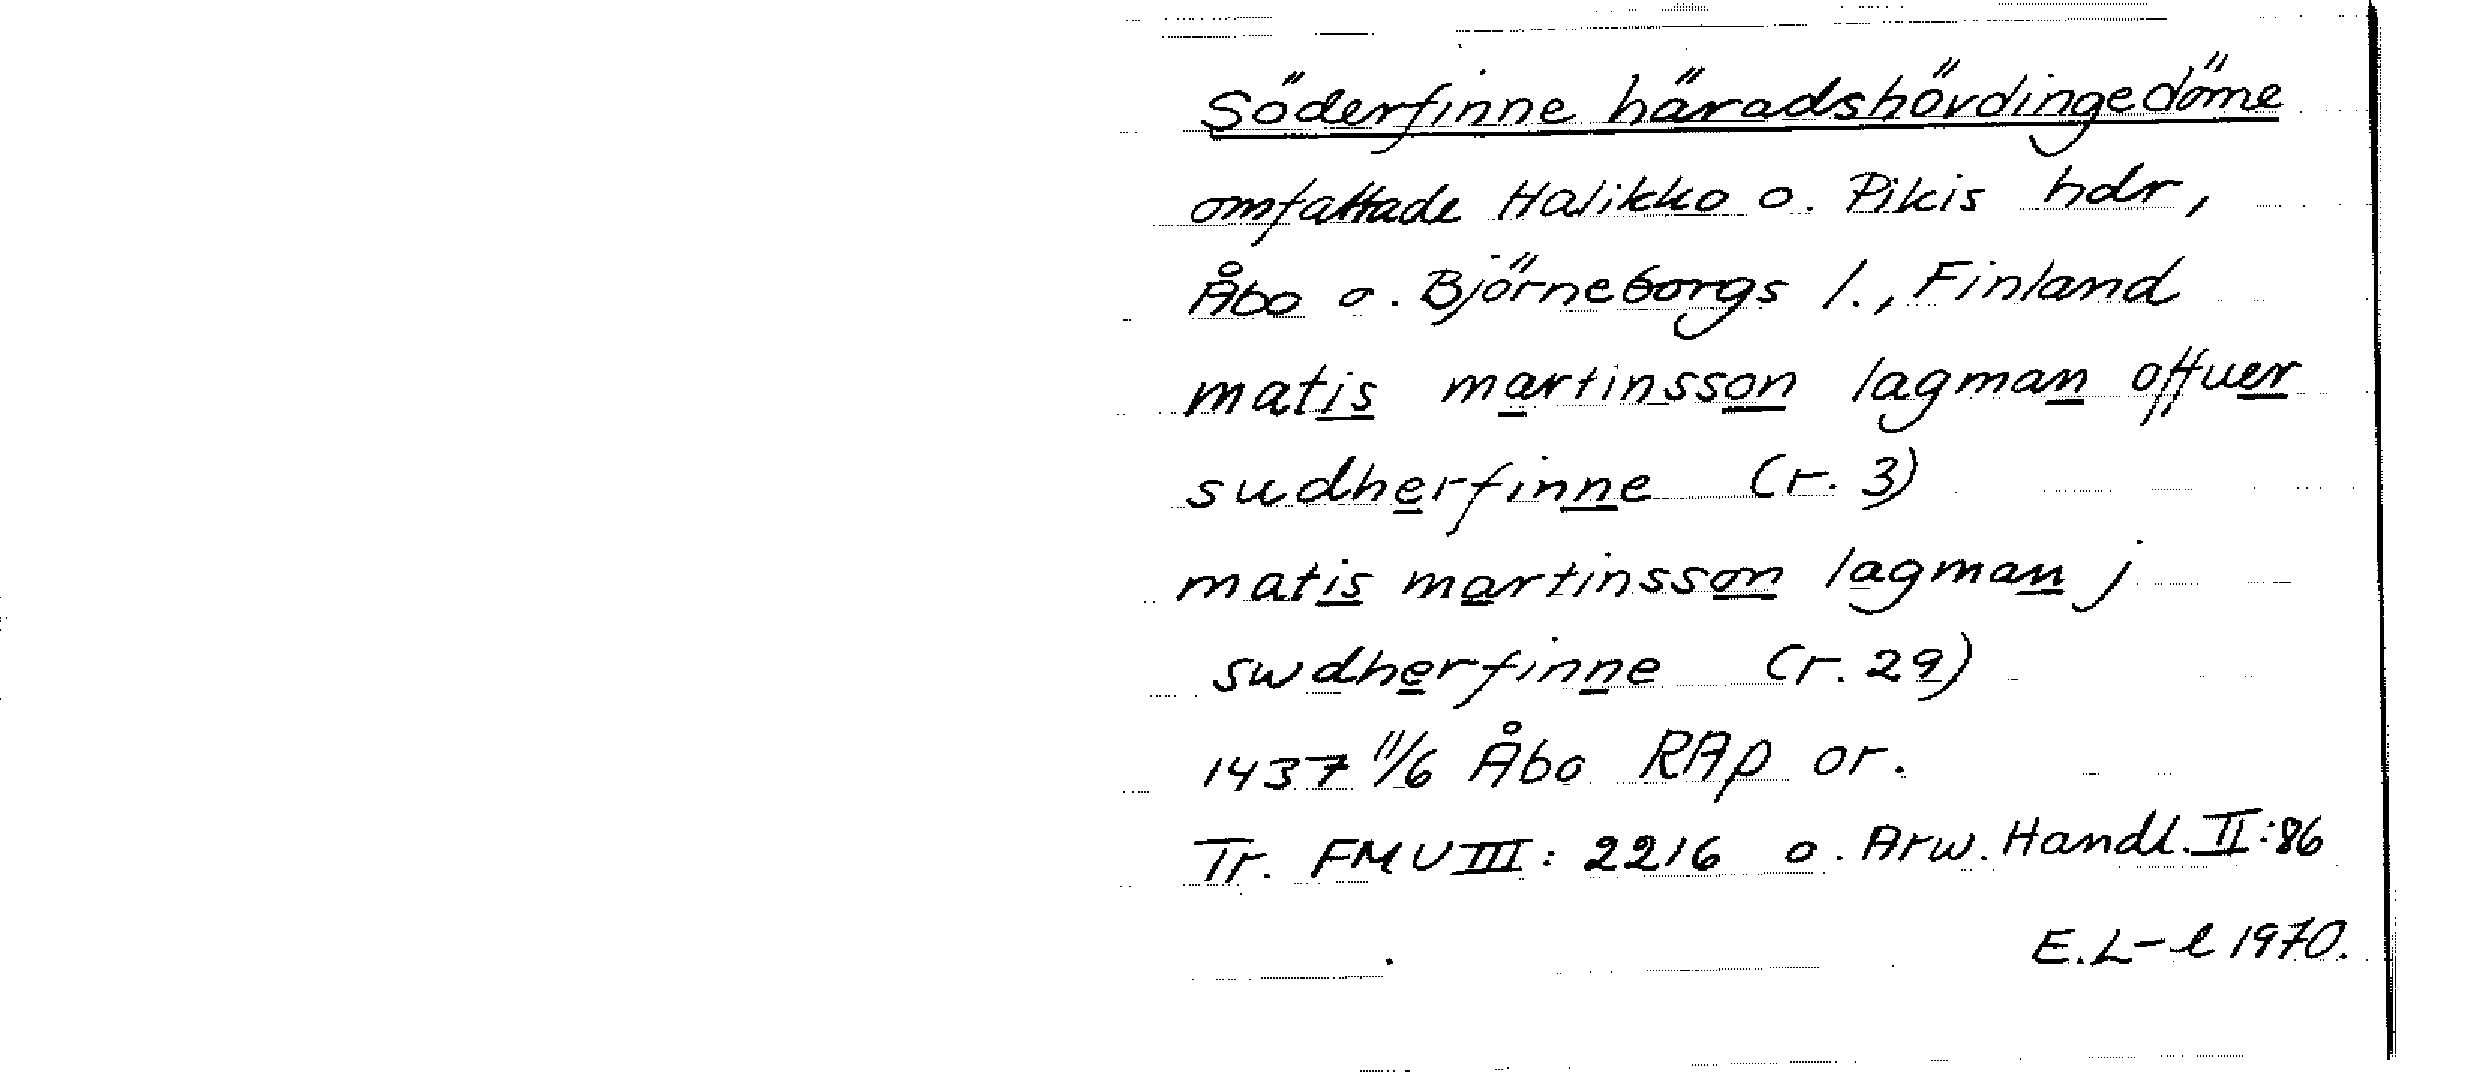 Söderfinne häradshövdingedöme
omfattade Halikko o. Pikis hdr,
Åbo o. Björneborgs l., Finland
matis martinsson lagman offuer
sudherfinne (r. 3)
matis martinsson lagman j
swdherfinne (r. 29)
1437 11/6 Åbo RAp or.
Tr. FMU III: 2216 o. Arw. Handl. II:86
E.L-l 1970.